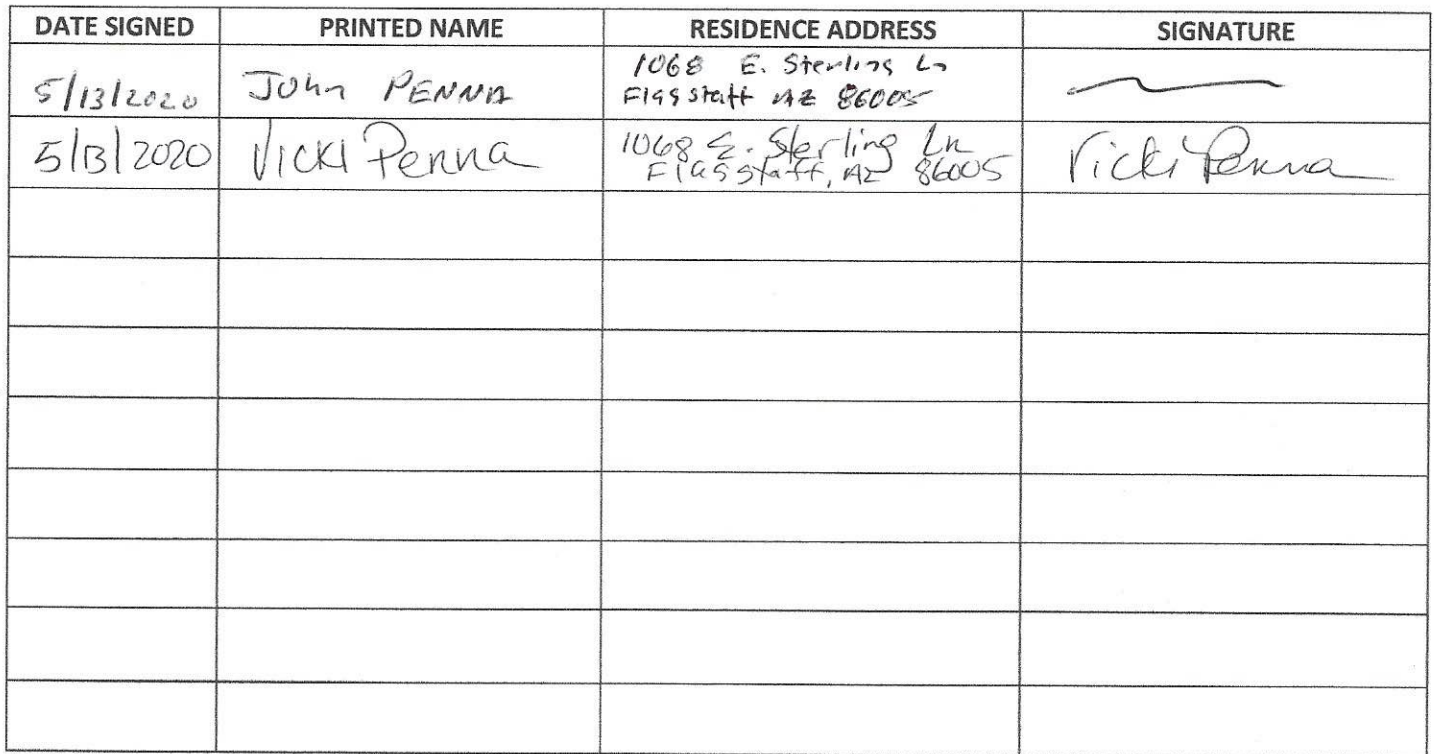 DATE SIGNED PRINTED NAME RESIDENCE ADDRESS SIGNATURE
5/13/2020 John PENNA 1068 E. Sterling Ln
Flagstaff AZ 86005
5/13/2020 Vicki Penna 1068 E. Sterling Ln
Flagstaff, AZ 86005 Vicki Penna